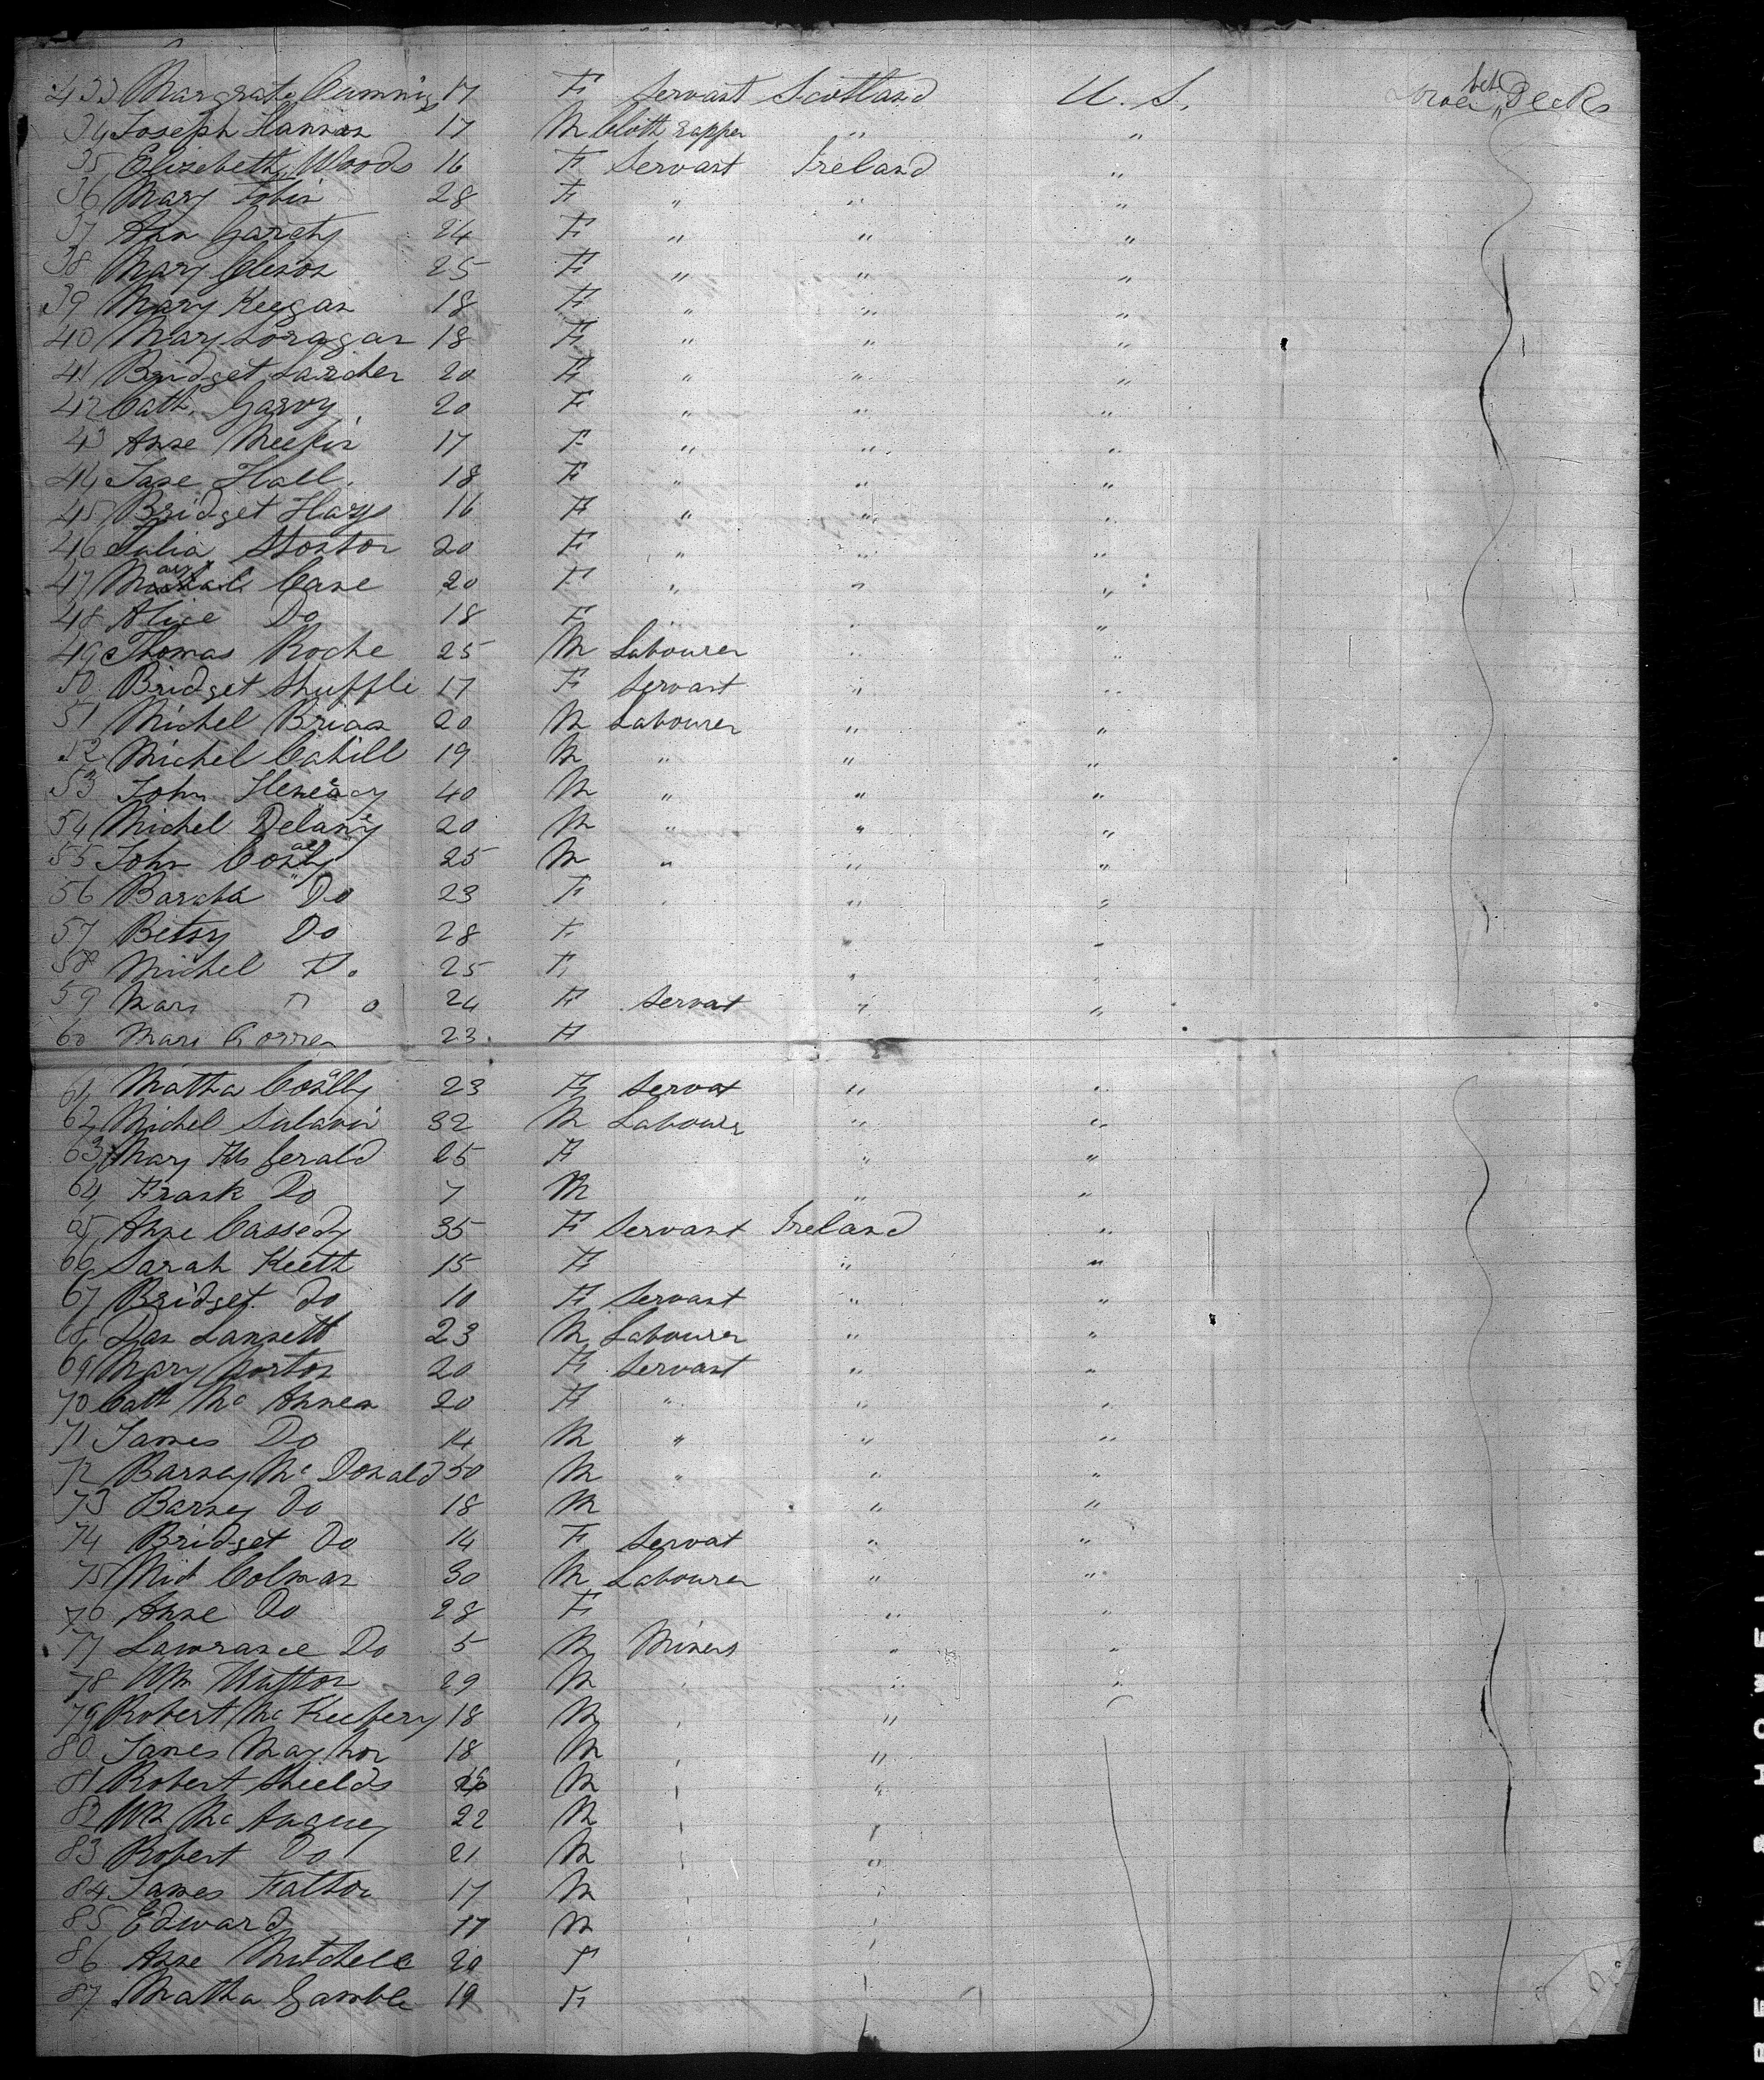 433 Margrate Cumnig 17 F Servant Scotland U. S. bet Decks
34 Joseph Hannan 17 M Cloth " "
35 Elizebeth Woods 16 F Servant Ireland "
36 Mary Tobin 28 F " " "
37 Ann Garety 24 F " " "
38 Mary Gleson 25 F " " "
39 Mary Keegan 18 F " " "
40 Mary Loragan 18 F " " "
41 Bridget Larcher 20 F " " "
42 Cath. Garvy 20 F " " "
43 Anne 17 F " " "
44 Jane Hall 18 F " " "
45 Bridget Hays 16 F " " "
46 Julia 20 F " " "
47 Cane 20 F " " "
48 Alice Do 18 F " "
49 Thomas Roche 25 M Labourer " "
50 Bridget Shuffle 17 F Servant " "
51 Michel Brian 20 M Labourer " "
52 Michel Cahill 19 M " " "
53 John 40 M " " "
54 Michel Delany 20 M " " "
55 John 25 M " " "
56 Do 23 F " "
57 Betsy Do 28 F " "
58 Michel Do 25 F " "
59 Mary Do 24 F Servat " "
60 Mary 23 F
61 Matha 23 F Servat " "
62 Michel 32 M Labourer " "
63 Mary Fitzgerald 25 F " "
64 Frank Do 7 M " "
65 Anne Cassedy 35 F Servant Ireland "
66 Sarah Keeth 15 F " "
67 Bridget Do 10 F Servant " "
68 Dan Lannett 23 M Labourer " "
69 Mary Norton 20 F Servant " "
70 Cath Mc 20 F " " "
71 James Do 14 M " " "
72 Barney Mc Donald 50 M " " "
73 Barney Do 18 M " "
74 Bridget Do 14 F Servat " "
75 Mich Colman 30 M Labourer " "
76 Anne Do 28 F " "
77 Lawrance Do 5 M Miners " "
78 Wm 29 M " "
79 Robert Mc 18 M "
80 James 18 M "
81 Robert Shields M "
82 Wm Mc 22 M "
83 Robert Do 21 M "
84 James Fatton 17 M "
85 Edward 17 M
86 Anne Mitchele 20 F
87 Matha Gamble 19 F